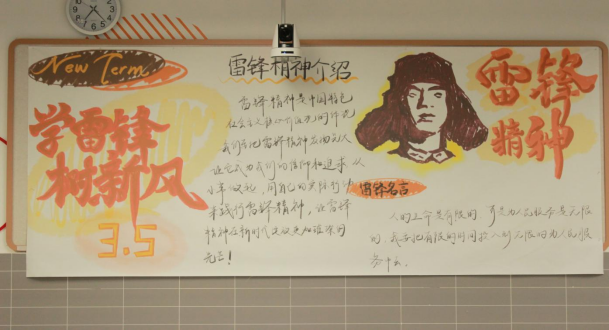 New Term
学雷锋
树新风
3.5
雷锋精神介绍
雷锋精神是中国特色
社会主义核心价值观的
我们要把雷锋精神
让它成为我们的信仰和追求 从
小事做起，用自己的实际行动
来践行雷锋精神，让雷锋
精神在新时代更加
雷锋
精神
雷锋名言
人的生命是有限的 可是为人民服务是无限
的，我要把有限的时间投入到无限的为人民服
务中去。